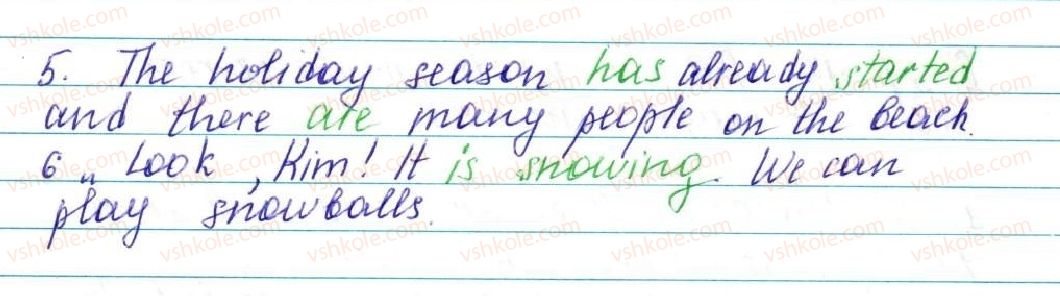 5. The holiday season has already started
and there are many people on the beach.
6 „ Look, Kim! It is snowing. We can
play snowballs.